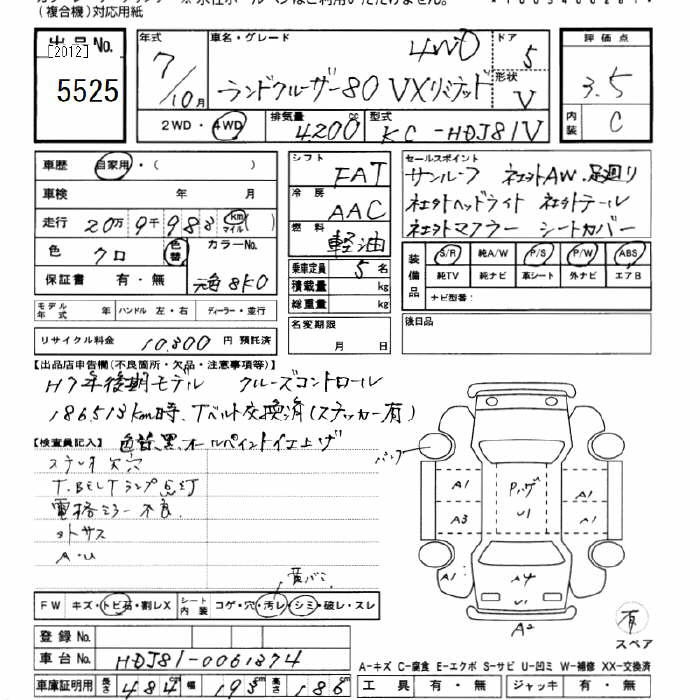 (複合機)対応用紙
出品No.
[2012]
5525
年式 車名・グレード ドア
7/10月 4WD 5
ランドクルーザー80 VXリミテッド 形状 V
2WD・4WD 排気量 4200 cc 型式 KC-HDJ81V
評価点
3.5
内装 C
車歴 自家用・( )
車検 年 月
走行 20万9千988 km マイル ( )
色 クロ 色替 カラーNo.
保証書 有・無 元色8K0
モデル年式 年 ハンドル 左・右 ディーラー・並行
リサイクル料金 10,800円 預託済
シフト FAT
冷房 AAC
燃料 軽油
乗車定員 5名
積載量 kg
総重量 kg
名変期限
月 日
セールスポイント
サンルーフ 社外AW.足回り
社外ヘッドライト 社外テール
社外マフラー シートカバー
装備品 S/R 純A/W P/S P/W ABS
純TV 純ナビ 革シート 外ナビ エアB
ナビ型番:
後日品
【出品店申告欄(不良箇所・欠品・注意事項等)】
H7年後期モデル クルーズコントロール
186513km時、Tベルト交換済(ステッカー有)
【検査員記入】 色替黒、オールペイント仕上げ
T.BELTランプ点灯
電格ミラー不良
A・U
FW キズ・トビ石・割レX シート内装 コゲ・穴・汚レ・シミ・破レ・スレ
登録No.
車台No. HDJ81-0061374
車庫証明用 長さ 484cm 幅 193cm 高さ 186cm
A1 A1
A3 U1 A1
A1 A4 A1
U1
A2
有
スペア
A-キズ C-腐食 E-エクボ S-サビ U-凹ミ W-補修 XX-交換済
工具 有・無 ジャッキ 有・無